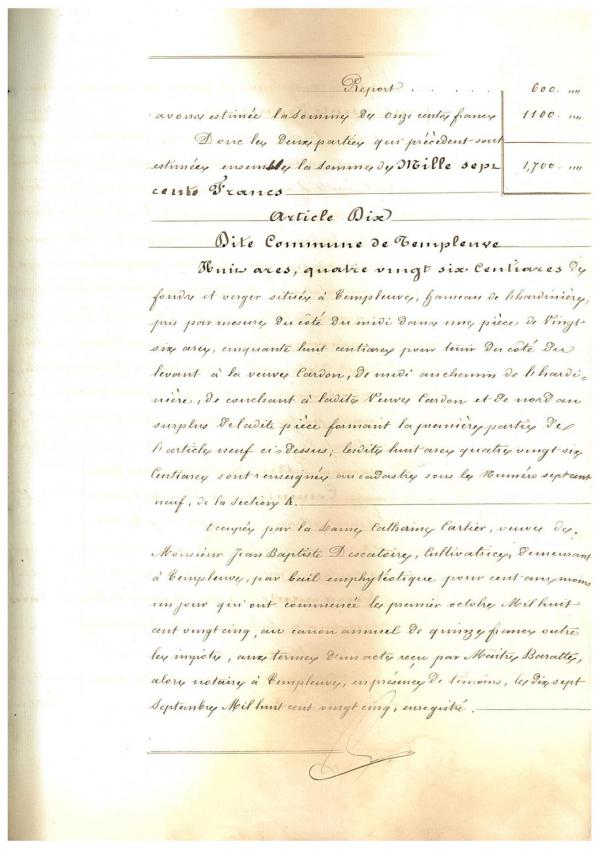 Report . . . . . . 600. "„
avons estimée la somme de onze cents francs 1100. "„
Donc les deux parties qui précèdent sont
estimées ensemble la somme de Mille sept 1,700. "„
cents Francs
Article Dix
Dite Commune de Templeuve
Huit ares, quatre vingt six Centiares de
fonds et verger situés à Templeuve, hameau de
pris par mesure du côté du midi dans une pièce de Vingt
six ares, cinquante huit centiares pour tenir du côté du
levant à la veuve Cardon, de midi au chemin de
de couchant à ladite Veuve Cardon et de nord au
surplus de ladite pièce formant la première partie de
l'article neuf ci-dessus; lesdits huit ares quatre vingt six
Centiares sont renseignés au cadastre sous le Numéro sept cent
neuf, de la section A.
Occupés par la Dame Catherine Cartier, veuve de
Monsieur Jean Baptiste Descatoire, Cultivatrice, demeurant
à Templeuve, par bail emphytéotique pour cent ans moins
un jour qui ont commencé le premier octobre Mil huit
cent vingt cinq, au canon annuel de quinze francs outre
les impôts, aux termes d'un acte reçu par Maître Baratte,
alors notaire à Templeuve, en présence de témoins, le dix sept
Septembre Mil huit cent vingt cinq, enregistré.